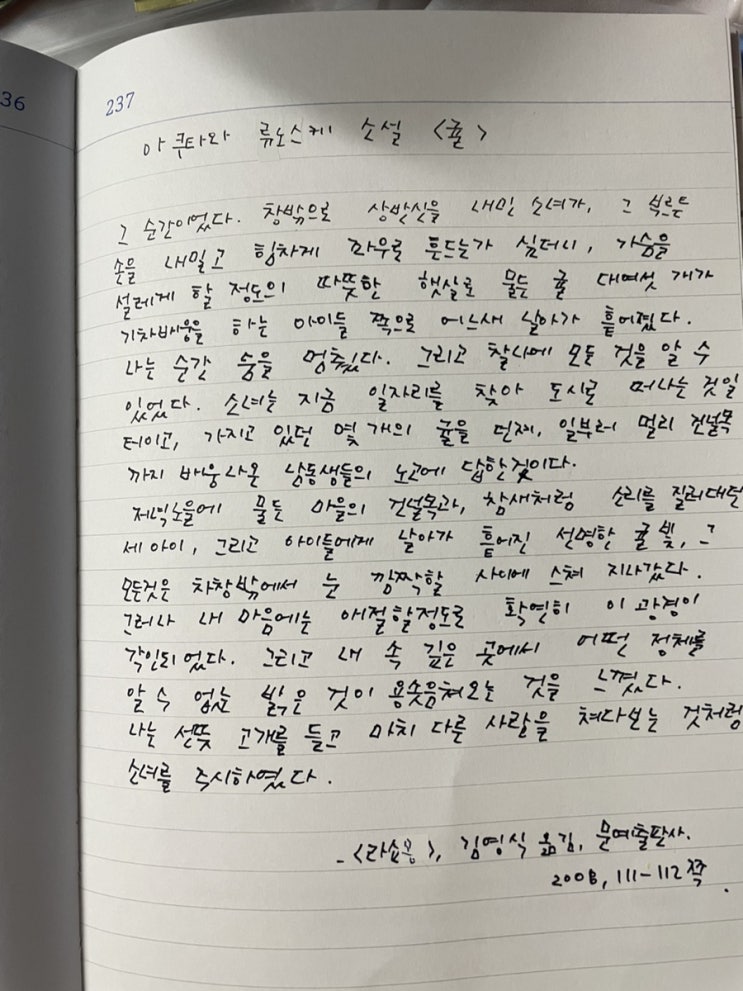 36
237
아쿠타와 류노스케 소설 <귤>
그 순간이었다. 창밖으로 상반신을 내민 소녀가, 그 부르튼
손을 내밀고 힘차게 좌우로 흔드는가 싶더니, 가슴을
설레게 할 정도의 따뜻한 햇살로 물든 귤 대여섯 개가
기차배웅을 하는 아이들 쪽으로 어느새 날아가 흩어졌다.
나는 순간 숨을 멈추었다. 그리고 찰나에 모든 것을 알 수
있었다. 소녀는 지금 일자리를 찾아 도시로 떠나는 것일
터이고, 가지고 있던 몇 개의 귤을 던져, 일부러 멀리 건널목
까지 배웅나온 남동생들의 노고에 답한것이다.
저녁노을에 물든 마을의 건널목과, 참새처럼 소리를 질러대던
세 아이, 그리고 아이들에게 날아가 흩어진 선명한 귤 빛, 그
모든것은 차창밖에서 눈 깜짝할 사이에 스쳐 지나갔다.
그러나 내 마음에는 애절할정도로 확연히 이 광경이
각인되었다. 그리고 내 속 깊은 곳에서 어떤 정체를
알 수 없는 밝은 것이 용솟음쳐오는 것을 느꼈다.
나는 선뜻 고개를 들고 마치 다른 사람을 쳐다보는 것처럼
소녀를 주시하였다.
- <라쇼몽>, 김영식 옮김, 문예출판사.
2008, 111-112 쪽.